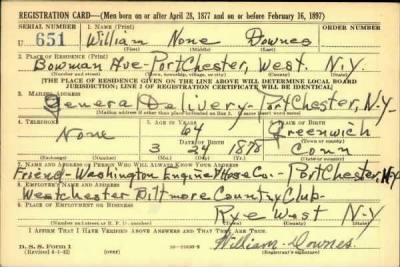 REGISTRATION CARD—(Men born on or after April 28, 1877 and on or before February 16, 1897)
SERIAL NUMBER 1. NAME (Print) ORDER NUMBER
U 651 William None Downes
(First) (Middle) (Last)
2. PLACE OF RESIDENCE (Print)
Bowman Ave-PortChester, West. N.Y.
(Number and street) (Town, township, village, or city) (County) (State)
[THE PLACE OF RESIDENCE GIVEN ON THE LINE ABOVE WILL DETERMINE LOCAL BOARD
JURISDICTION; LINE 2 OF REGISTRATION CERTIFICATE WILL BE IDENTICAL]
3. MAILING ADDRESS
General Delivery-PortChester, N-Y-
4. TELEPHONE 5. AGE IN YEARS 6. PLACE OF BIRTH
None 64 Greenwich
DATE OF BIRTH (Town or county)
3 24 1878 Conn
(Mo.) (Day) (Yr.) (State or country)
7. NAME AND ADDRESS OF PERSON WHO WILL ALWAYS KNOW YOUR ADDRESS
Friend-Washington Engine & Hose Co.- PortChester, N.Y.
8. EMPLOYER'S NAME AND ADDRESS
Westchester Biltmore Country Club-
9. PLACE OF EMPLOYMENT OR BUSINESS
Rye West N-Y
(Number and street or R. F. D. number) (Town) (County) (State)
I AFFIRM THAT I HAVE VERIFIED ABOVE ANSWERS AND THAT THEY ARE TRUE.
D. S. S. Form 1
(Revised 4-1-42) (over)
William-Downes
(Registrant's signature)